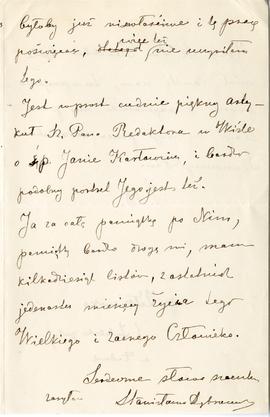 byłoby już niewłaściwe i tę pracę
poświęcać, więc też nie uczyniłam
tego.
Jest wprost cudnie piękny arty-
kuł Sz. Pana Redaktora w Wiśle
o śp. Janie Karłowiczu, i bardzo
podobny portret Jego jest też.
Ja za całą pamiątkę po Nim,
pamiątkę bardzo drogą mi, mam
kilkadziesiąt listów, z ostatnich
jedenastu miesięcy życia tego
Wielkiego i zacnego Człowieka.
Serdeczne słowa szacunku
zasyłam
Stanisława